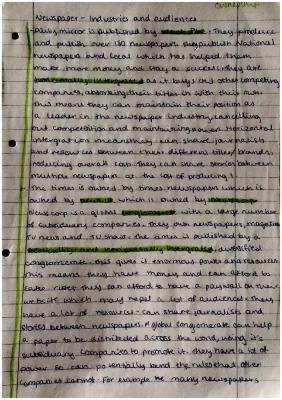 Ownership
Newspaper - Industries and audiences
- Daily mirror is published by . They produce
and publish over 130 newspapers. publish National
newspapers and local which has helped them
make more money and stay a success. they are
horizontally integrated as it buys out other competing
companies, absorbing their titles in with their own
This means they can maintain their position as
a leader in the newspaper industry, cancelling
out competition and maintaining power. Horizontal
intergration means they can share journalists
and resources between their different titles/brands,
reducing overall cost. They can share stories between
multiple newspapers at the cost of producing 1.
- The times is owned by times newspapers which is
owned by which is owned by
News corp is a global conglomerate with a large number
of subsidiary companies. they own newspapers, magazines
TV news and TV shows. The times is published by a
vertically and horizontally intergrated, diversified
conglomerate this gives it enormous power and resources
This means they have money and can afford to
take risks. they can afford to have a paywall on their
website which may repel a lot of audience. They
have a lot of resources - can share journalists and
stories between newspapers. A global conglomerate can help
a paper to be distributed across the world, using it's
subsidiary companies to promote it. they have a lot of
power so can potentially bend the rules that other
companies cannot. For example the many newspapers